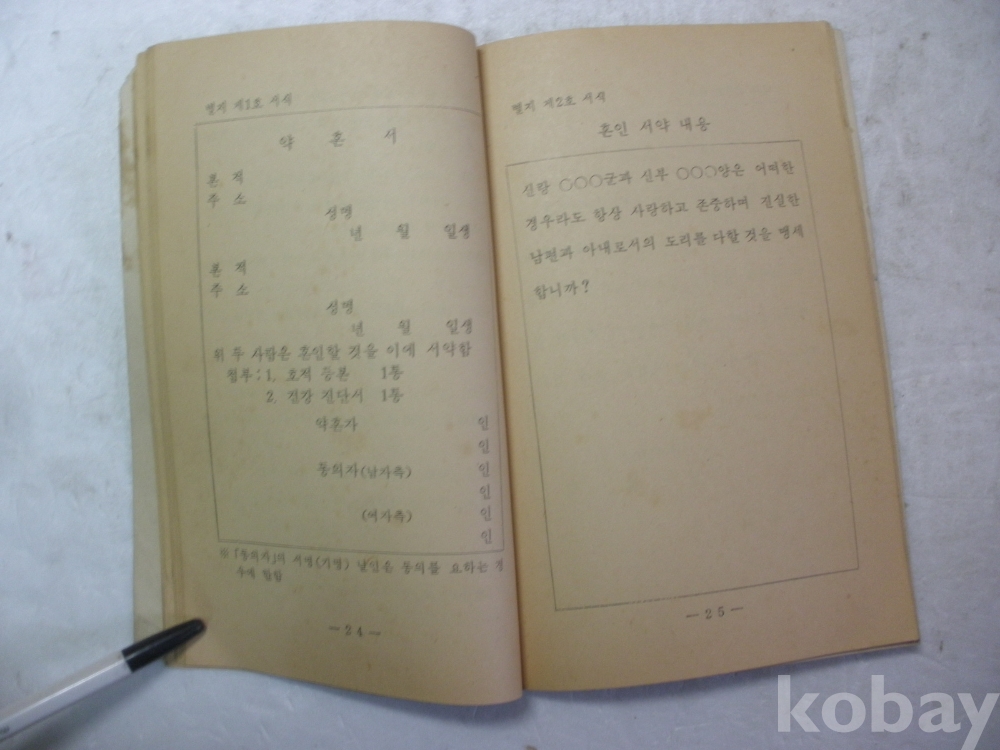 별지 제1호 서식
약 혼 서
본 적
주 소
성명
년 월 일생
본 적
주 소
성명
년 월 일생
위 두 사람은 혼인할 것을 이에 서약함
첨부 : 1. 호적 등본 1통
2. 건강 진단서 1통
약혼자 인
인
동의자(남자측) 인
인
(여자측) 인
인
※ 「동의자」의 서명(기명) 날인은 동의를 요하는 경
우에 한함
— 24 —
별지 제2호 서식
혼인 서약 내용
신랑 ○○○군과 신부 ○○○양은 어떠한
경우라도 항상 사랑하고 존중하며 진실한
남편과 아내로서의 도리를 다할 것을 맹세
합니까?
— 25 —
kobay